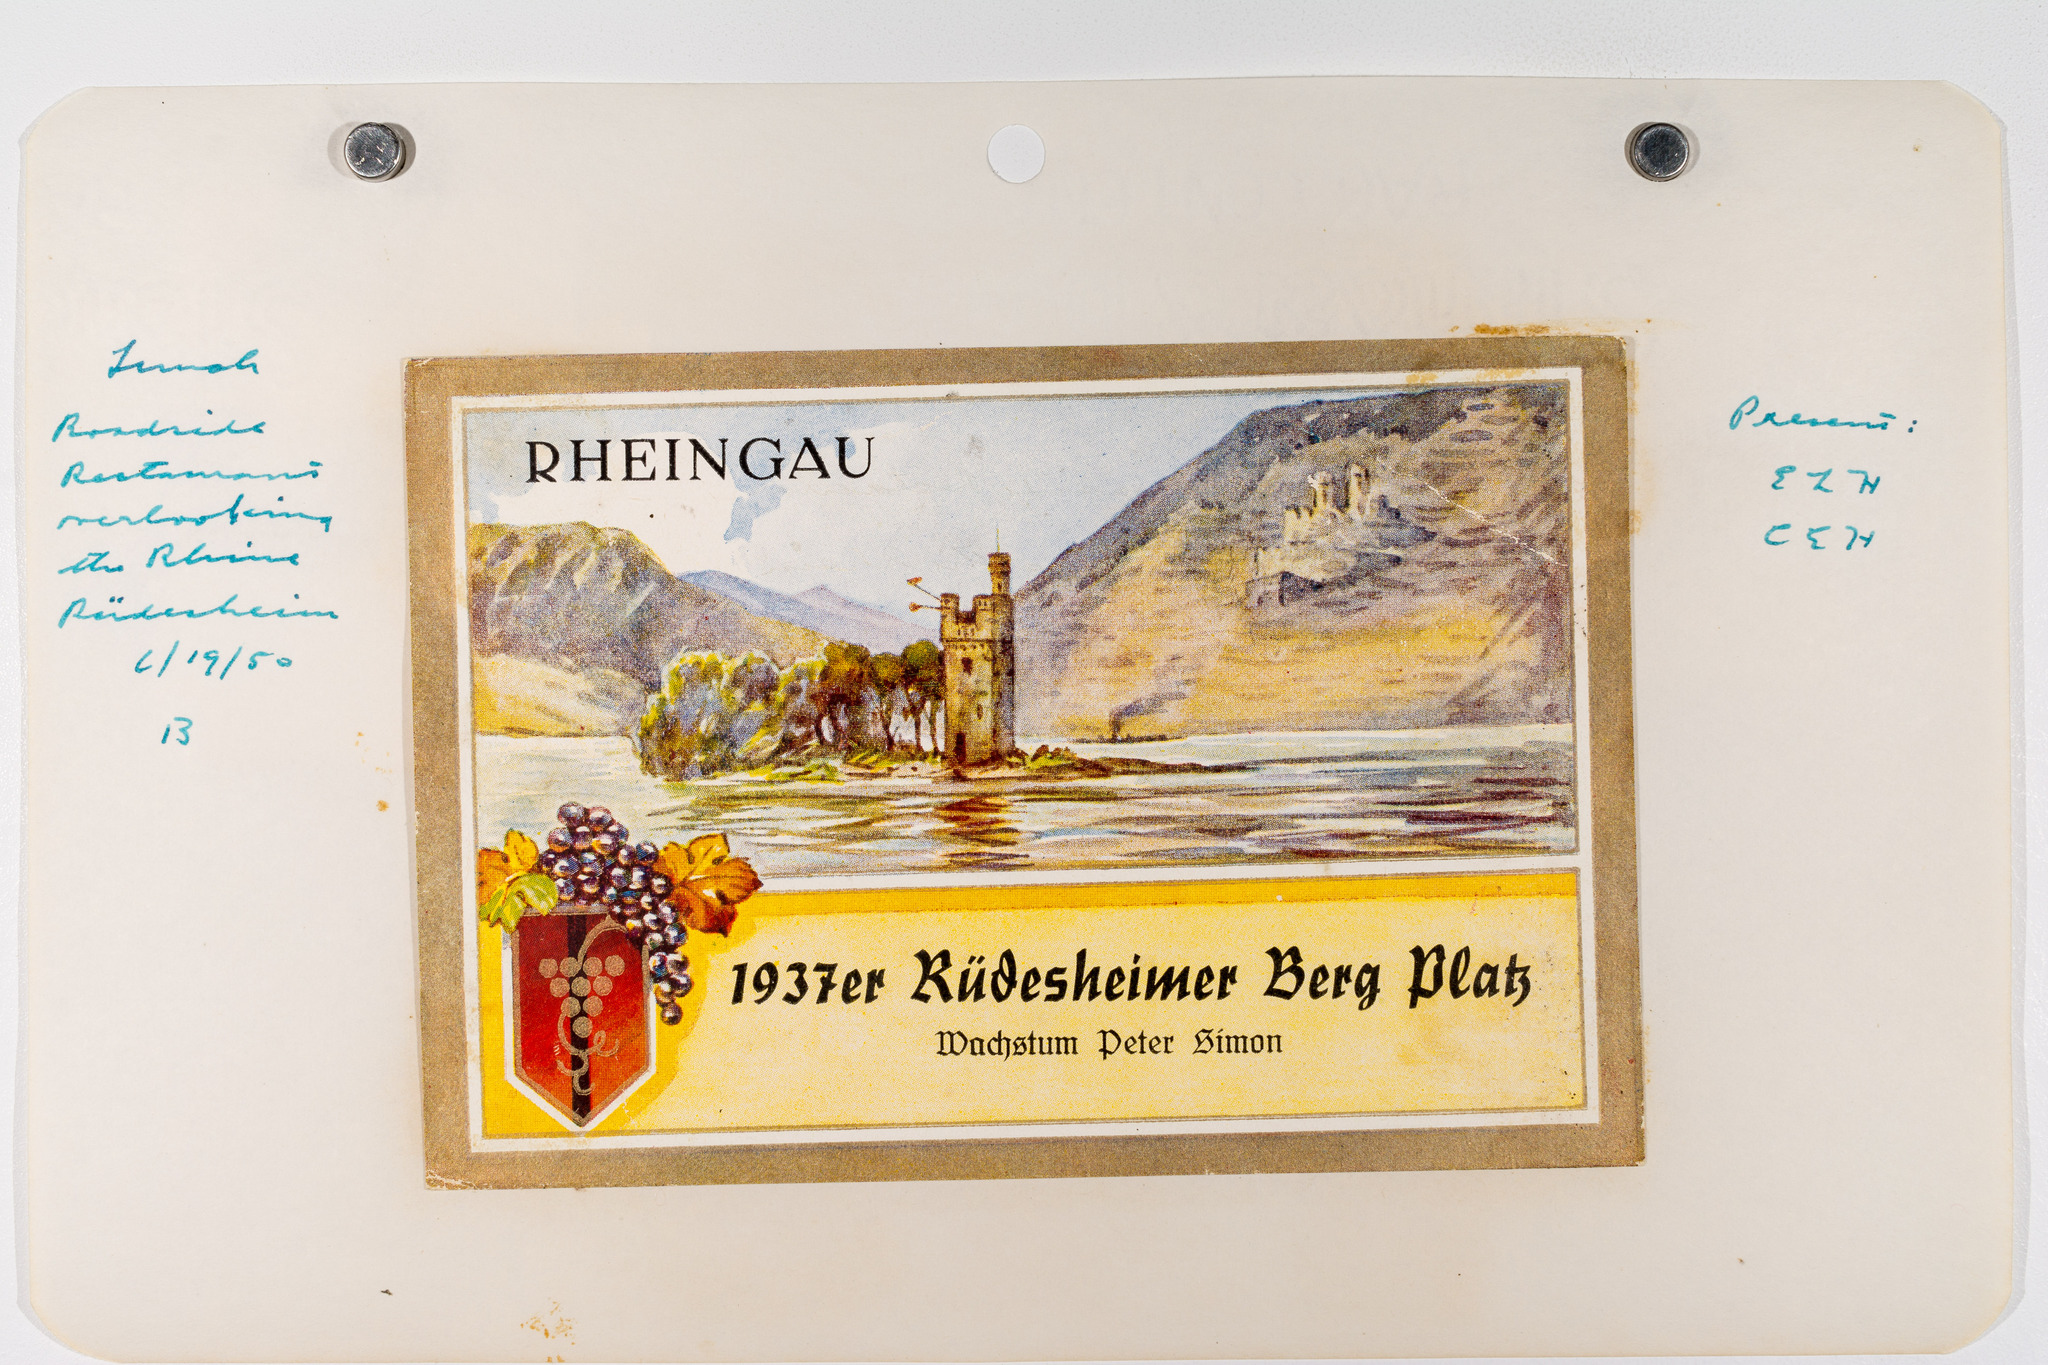 Lunch
Roadside
Restaurant
overlooking
the Rhine
Rüdesheim
6/19/50
B
RHEINGAU
1937er Rüdesheimer Berg Platz
Wachstum Peter Simon
Present:
E L H
C E H